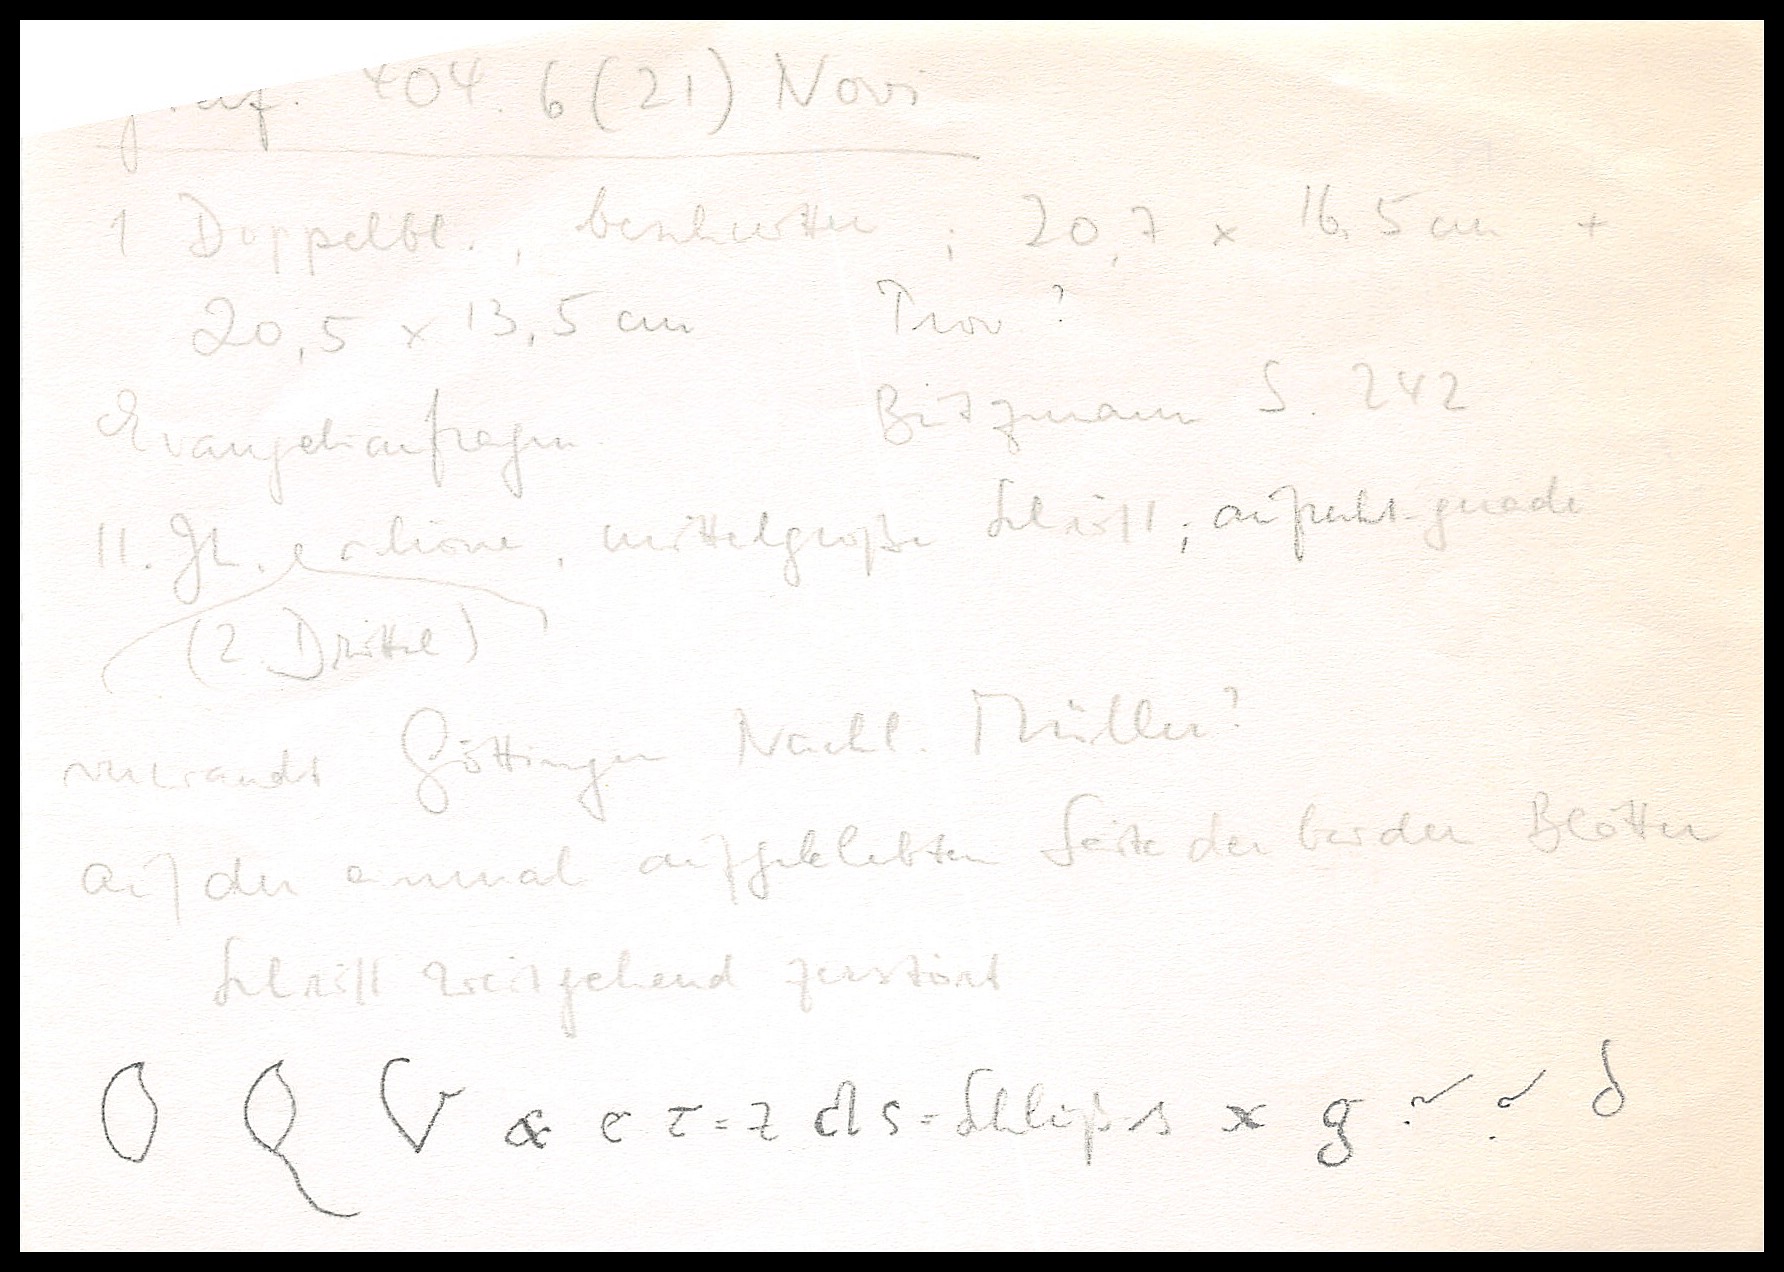 404. 6 (21) Novi
1 Doppelbl., beschnitten ; 20,7 x 16,5 cm +
20,5 x 13,5 cm Prov ?
Evangelienfragm. Bischoff S. 242
11. Jh., schöne, mittelgroße Schrift, aufrecht-gerade
(2. Drittel)
verwandt Göttingen Nachl. Müller?
auf der einmal aufgeklebten Seite der beiden Blätter
Schrift weitgehend zerstört
O Q V & e τ = z ds = Schluß-s x g